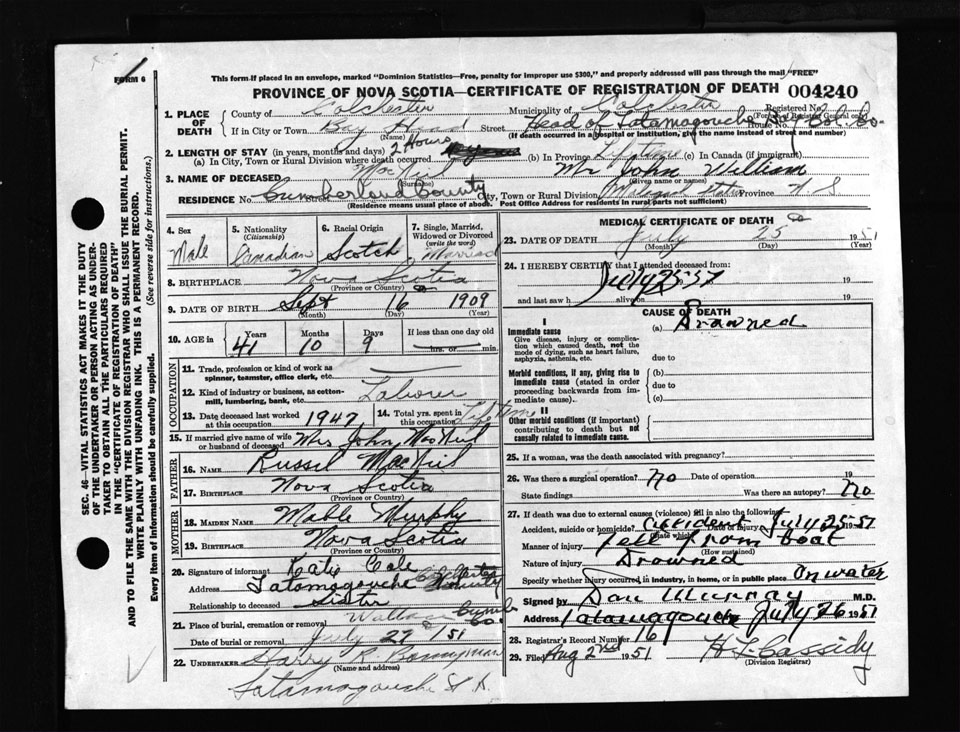 FORM 6
This form if placed in an envelope, marked "Dominion Statistics—Free, penalty for improper use $300," and properly addressed will pass through the mail "FREE"
PROVINCE OF NOVA SCOTIA—CERTIFICATE OF REGISTRATION OF DEATH 004240
SEC. 46—VITAL STATISTICS ACT MAKES IT THE DUTY
OF THE UNDERTAKER OR PERSON ACTING AS UNDER-
TAKER TO OBTAIN ALL THE PARTICULARS REQUIRED
IN THE "CERTIFICATE OF REGISTRATION OF DEATH"
AND TO FILE THE SAME WITH THE DIVISION REGISTRAR WHO SHALL ISSUE THE BURIAL PERMIT.
WRITE PLAINLY WITH UNFADING INK. THIS IS A PERMANENT RECORD.
Every item of information should be carefully supplied. (See reverse side for instructions.)
1. PLACE OF DEATH
County of Colchester Municipality of Colchester Registered No.
(For use of Registrar General only)
If in City or Town Bay Head (Name) Street Head of Tatamagouche House No. Bay Col. Co.
(If death occurred in a hospital or institution, give the name instead of street and number)
2. LENGTH OF STAY (in years, months and days) 2 Hours
(a) In City, Town or Rural Division where death occurred (b) In Province Lifetime (c) In Canada (if immigrant)
3. NAME OF DECEASED MacNeil Mr John William
(Given name or names)
RESIDENCE No. Street Cumberland County City, Town or Rural Division Province N S
(Residence means usual place of above. Post Office Address for residents in rural parts not sufficient)
4. Sex Male
5. Nationality (Citizenship) Canadian
6. Racial Origin Scotch
7. Single, Married, Widowed or Divorced (write the word) Married
8. BIRTHPLACE Nova Scotia
(Province or Country)
9. DATE OF BIRTH Sept 16 1909
(Month) (Day) (Year)
10. AGE in Years 41 Months 10 Days 9 If less than one day old hrs. or min.
OCCUPATION
11. Trade, profession or kind of work as spinner, teamster, office clerk, etc.
12. Kind of industry or business, as cotton-mill, lumbering, bank, etc. Laborer
13. Date deceased last worked at this occupation 1947
14. Total yrs. spent in this occupation Lifetime
15. If married give name of wife or husband of deceased Mrs John MacNeil
FATHER
16. NAME Russil MacNeil
17. BIRTHPLACE Nova Scotia
(Province or Country)
MOTHER
18. MAIDEN NAME Mable Murphy
19. BIRTHPLACE Nova Scotia
(Province or Country)
20. Signature of informant Katie Cole
Address Tatamagouche Colchester County
Relationship to deceased Sister
21. Place of burial, cremation or removal Wallace Cumb Co.
Date of burial or removal July 27/51
22. UNDERTAKER Harry R. Bonnyman
(Name and address)
Tatamagouche N.S.
MEDICAL CERTIFICATE OF DEATH
23. DATE OF DEATH July 25 1951
(Month) (Day) (Year)
24. I HEREBY CERTIFY that I attended deceased from:
July 25-51 19
and last saw h alive on 19
CAUSE OF DEATH
I
Immediate cause (a) Drowned
Give disease, injury or complication which caused death, not the mode of dying, such as heart failure, asphyxia, asthenia, etc.
due to
Morbid conditions, if any, giving rise to immediate cause (stated in order proceeding backwards from immediate cause).
(b)
due to
(c)
II
Other morbid conditions (if important) contributing to death but not causally related to immediate cause.
25. If a woman, was the death associated with pregnancy?
26. Was there a surgical operation? No Date of operation 19
State findings Was there an autopsy? No
27. If death was due to external causes (violence) fill in also the following:
Accident, suicide or homicide? Accident July 25 1951
(State which)
Manner of injury Fell from boat
(How sustained)
Nature of injury Drowned
Specify whether injury occurred in industry, in home, or in public place On water
Signed by Dan Murray M.D.
Address Tatamagouche July 26 1951
28. Registrar's Record Number 16
29. Filed Aug 2nd 1951 H L Cassidy
(Division Registrar)